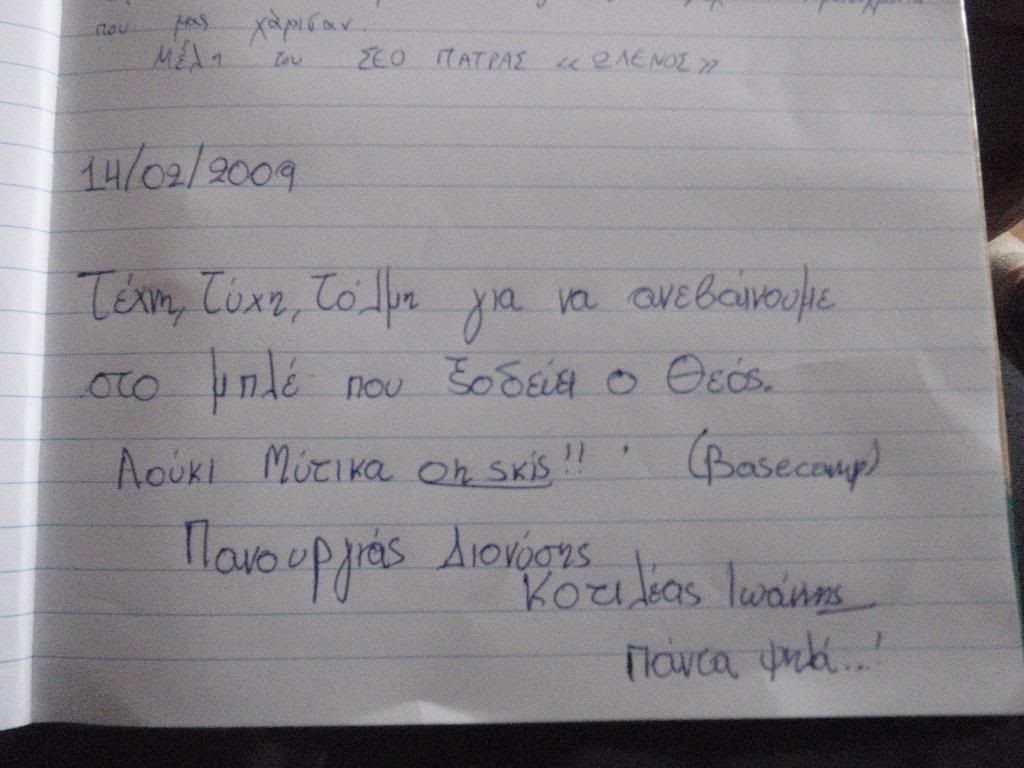 που μας χάρισαν.
Μέλη του ΣΕΟ ΠΑΤΡΑΣ «ΩΛΕΝΟΣ»
14/02/2009
Τέχνη, Τύχη, Τόλμη για να ανεβαίνουμε
στο μπλέ που ξοδεύει ο Θεός.
Λούκι Μύτικα on skis!! (Basecamp)
Πανουργιάς Διονύσης
Κοτιλέας Ιωάννης
Πάντα ψηλά...!